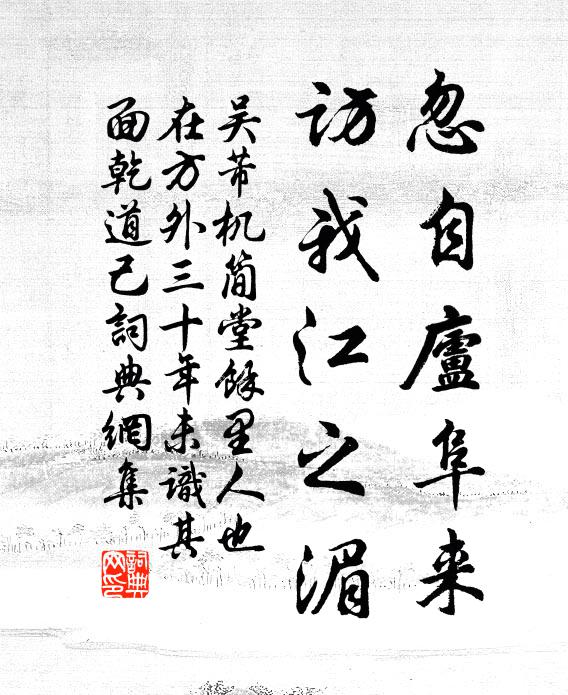 忽自廬阜来
访我江之湄
吴芾机简堂馀里人也
在方外三十年未識其
面乾道己詞典網集
詞典网印